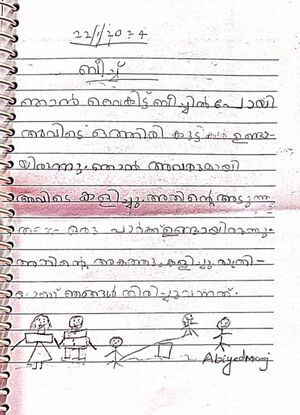 22/1/2024
ബീച്ച്
ഞാൻ വൈകിട്ട് ബീച്ചിൽ പോയി
അവിടെ ഒത്തിരി കുട്ടികൾ ഉണ്ടാ
യിരുന്നു. ഞാൻ അവരുമായി
അവിടെ കളിച്ചു. അതിന്റെ അടുത്തു
ഒരു പാർക്ക് ഉണ്ടായിരുന്നു.
അതിന്റെ അകത്തു കളിച്ചു. രാത്രി
ഞങ്ങൾ തിരിച്ചുവന്നത്.